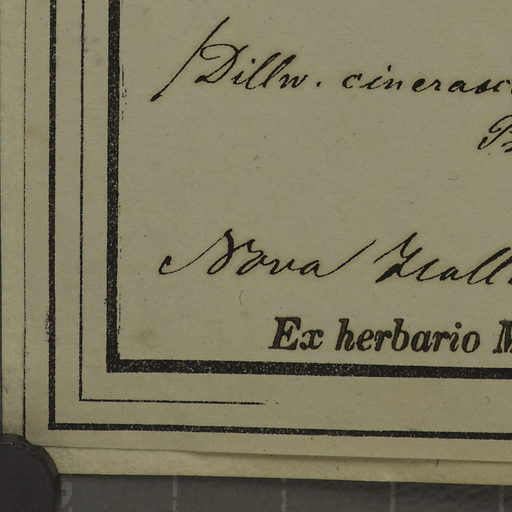 /Dillw. cinerasc
Nova Holl
Ex herbario M